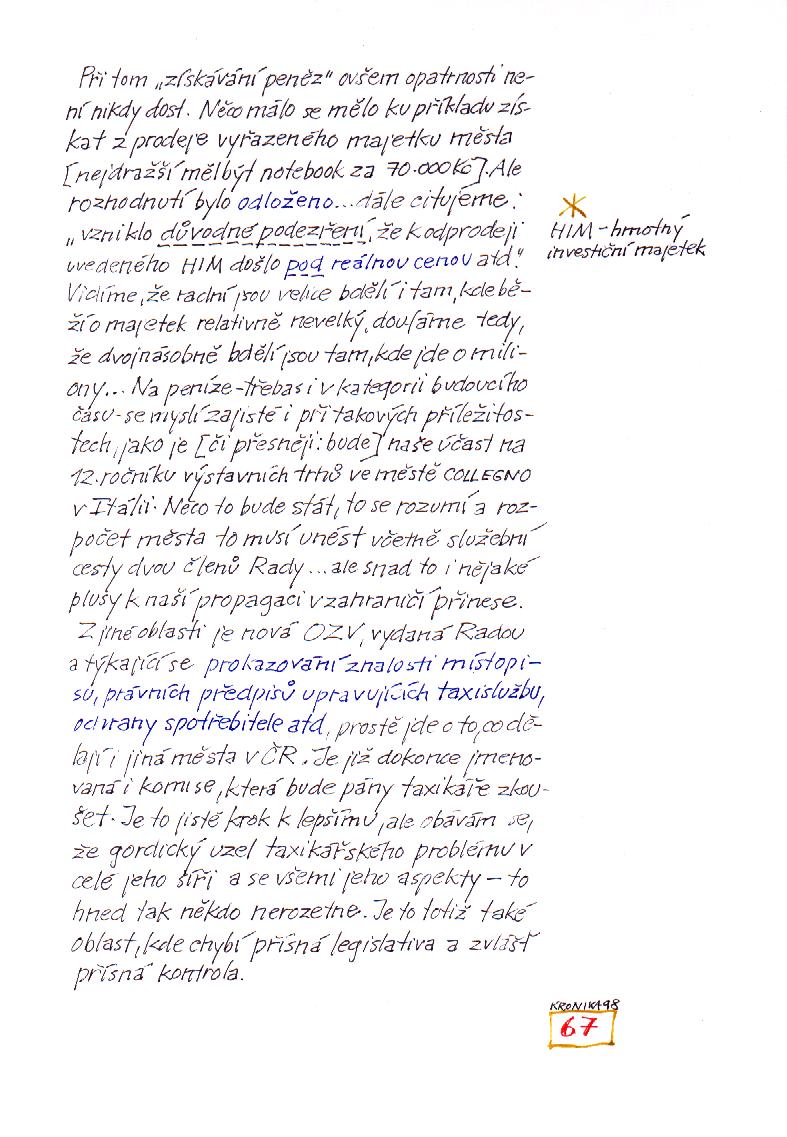 Při tom „získávání peněz" ovšem opatrnosti ne-
ní nikdy dost. Něco málo se mělo ku příkladu zís-
kat z prodeje vyřazeného majetku města
[nejdražší měl být notebook za 70.000 Kč]. Ale
rozhodnutí bylo odloženo...dále citujeme:
„vzniklo důvodné podezření, že k odprodeji
uvedeného HIM došlo pod reálnou cenou atd."
Vidíme, že radní jsou velice bdělí i tam, kde bě-
ží o majetek relativně nevelký, doufáme tedy,
že dvojnásobně bdělí jsou tam, kde jde o mili-
ony... Na peníze-třebas i v kategorii budoucího
času-se myslí zajisté i při takových příležitos-
tech, jako je [či přesněji: bude] naše účast na
12. ročníku výstavních trhů ve městě COLLEGNO
v Itálii. Něco to bude stát, to se rozumí a roz-
počet města to musí unést včetně služební
cesty dvou členů Rady...ale snad to i nějaké
plusy k naší propagaci v zahraničí přinese.
Z jiné oblasti je nová OZV, vydaná Radou
a týkající se prokazování znalosti místopi-
su, právních předpisů upravujících taxislužbu,
ochrany spotřebitele atd, prostě jde o to, co dě-
lají i jiná města v ČR. Je již dokonce jmeno-
vaná i komise, která bude pány taxikáře zkou-
šet. Je to jistě krok k lepšímu, ale obávám se,
že gordický uzel taxikářského problému v
celé jeho šíři a se všemi jeho aspekty – to
hned tak někdo nerozetne. Je to totiž také
oblast, kde chybí přísná legislativa a zvlášť
přísná kontrola.
*
HIM – hmotný
investiční majetek
KRONIKA 98
67